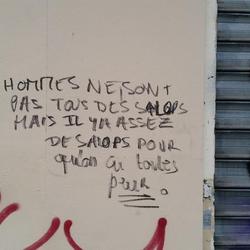 HOMMES NE SONT
PAS TOUS DES SALOPS
MAIS IL Y A ASSEZ
DE SALOPS POUR
qu'on ai toutes
peur.